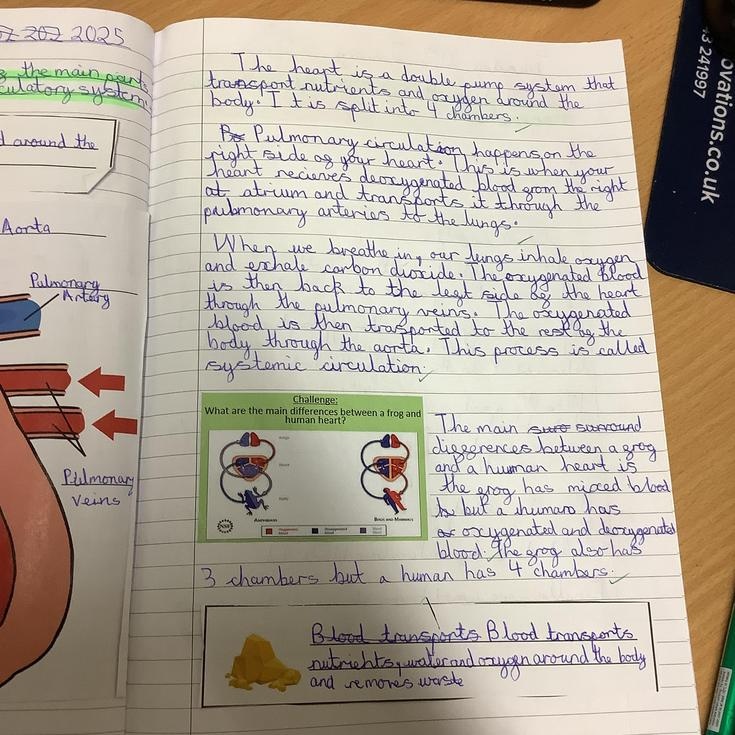 2025
s the main parts
culatory system.
d around the
Aorta
Pulmonary
Artery
Pulmonary
Veins
The heart is a double pump system that
transport nutrients and oxygen around the
body. It is split into 4 chambers.
Pulmonary circulation happens on the
right side of your heart. This is when your
heart recieves deoxygenated blood from the right
at atrium and transports it through the
pulmonary arteries to the lungs.
When we breathe in, our lungs inhale oxygen
and exhale carbon dioxide. The oxygenated blood
is then back to the left side of the heart
through the pulmonary veins. The oxygenated
blood is then transported to the rest of the
body through the aorta. This process is called
systemic circulation.
Challenge:
What are the main differences between a frog and
human heart?
Lungs
Heart
Body
Amphibians
Birds and Mammals
Oxygenated blood
Deoxygenated blood
Mixed blood
The main surround
differences between a frog
and a human heart is
the frog has mixed blood
but a human has
oxygenated and deoxygenated
blood. The frog also has
3 chambers but a human has 4 chambers.
Blood transports Blood transports
nutrients, water and oxygen around the body
and removes waste
ovations.co.uk
3 241997